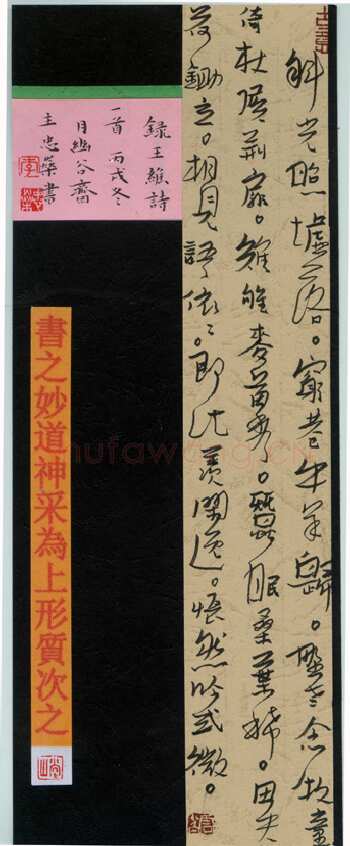 斜光照墟落。窮巷牛羊歸。野老念牧童
倚杖候荊扉。雉雊麥苗秀。蠶眠桑葉稀。田夫
荷鋤立。相見語依々。即此羨閒逸。悵然吟式微。
錄王維詩
一首 丙戌冬
月幽谷齋
主忠書
書之妙道神采為上形質次之